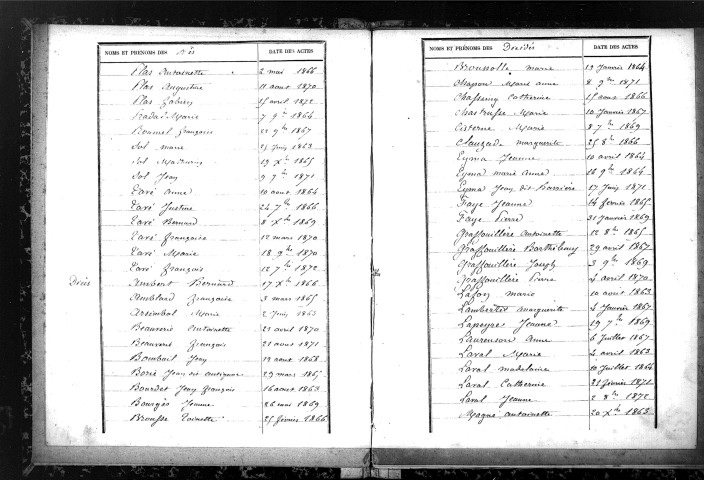 NOMS ET PRÉNOMS DES Nés DATE DES ACTES
Plas Antoinette 2 mai 1866
Plas Augustine 11 aout 1870
Plas 15 avril 1872
Marie 7 9bre 1864
Rommel François 22 9bre 1867
Sol Marie 25 Juin 1863
Sol 19 Xbre 1865
Sol Jean 9 7bre 1871
Taré Anne 10 aout 1864
Taré Justine 24 7bre 1866
Taré Bernard 8 Xbre 1869
Taré Françoise 12 mars 1870
Taré Marie 18 9bre 1870
Taré François 12 7bre 1872
Décès Ambert Bernard 17 Xbre 1866
Amblard Françoise 3 mars 1865
Marie 2 Juin 1863
Beauverie Antoinette 21 avril 1870
François 21 aout 1871
Jean 19 aout 1868
Borie Jean dit 29 mars 1865
Bourdet Jean François 16 aout 1863
Bourgès Jeanne 26 mai 1869
Brousse Toinette 25 février 1866
NOMS ET PRÉNOMS DES Décédés DATE DES ACTES
Broussolle Marie 19 Janvier 1864
Marie anne 8 9bre 1871
Chassaing Catherine 15 mars 1866
Chastrusse Marie 10 Janvier 1867
Cisterne Marie 8 7bre 1869
Clauzade marguerite 25 8bre 1866
Eyma Jeanne 10 avril 1864
Eyma marie Anne 16 9bre 1864
Eyma Jean dit Barrière 17 Juin 1871
Faye Jeanne 14 février 1865
Faye Pierre 31 Janvier 1869
Graffouillère Antoinette 12 8bre 1865
Graffouillère Barthélemy 29 avril 1867
Graffouillère Joseph 3 9bre 1869
Graffouillère Pierre 4 avril 1870
Lafon marie 10 avril 1863
Lambertet marguerite 4 Janvier 1867
Lapeyre Jeanne 19 7bre 1869
Laurensou Anne 6 Juillet 1867
Laval Marie 4 avril 1863
Laval madelaine 10 Juillet 1864
Laval Catherine 21 février 1871
Laval Jeanne 2 8bre 1872
Magne Antoinette 20 Xbre 1863